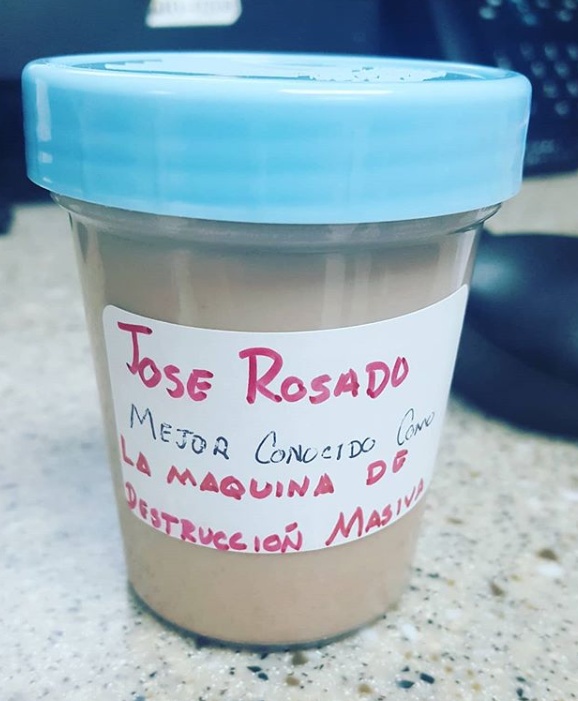 JOSE ROSADO
MEJOR CONOCIDO COMO
LA MAQUINA DE
DESTRUCCIÓN MASIVA